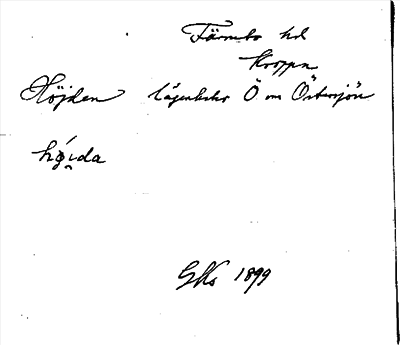 Färnebo hd
Kroppa
Höjden lägenheter Ö om Östersjön
hǫ́i̯da
GKs 1899